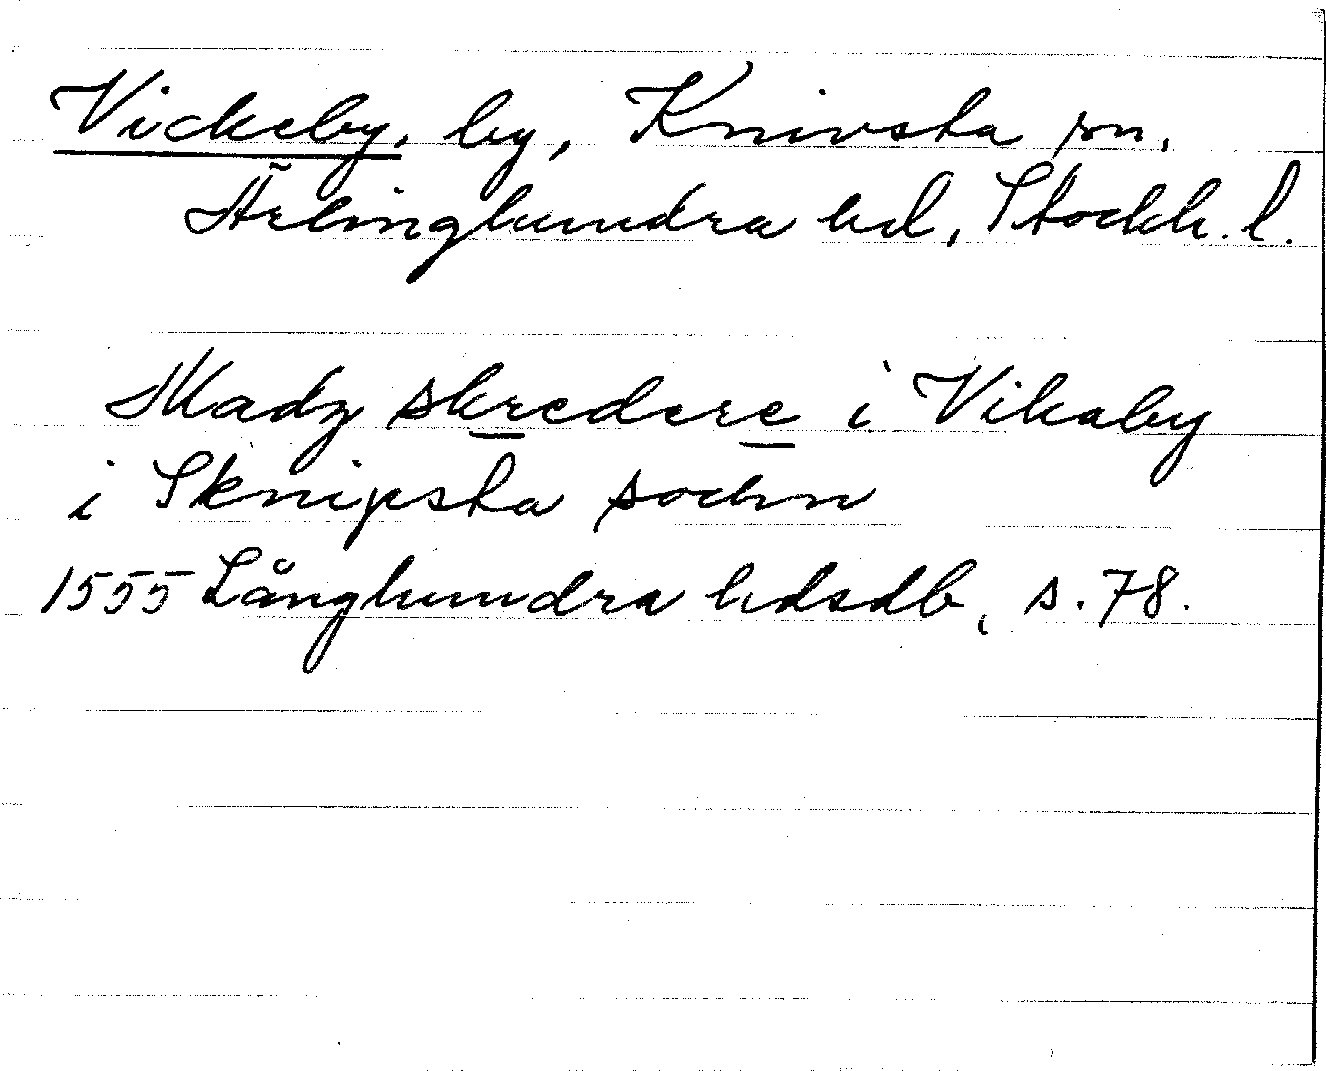 Vickeby, by, Knivsta sn,
Ärlinghundra hd, Stockh. l.
Madz skredere i Vikaby
i Sknipsta sochn
1555 Långhundra hdsdb, s. 78.